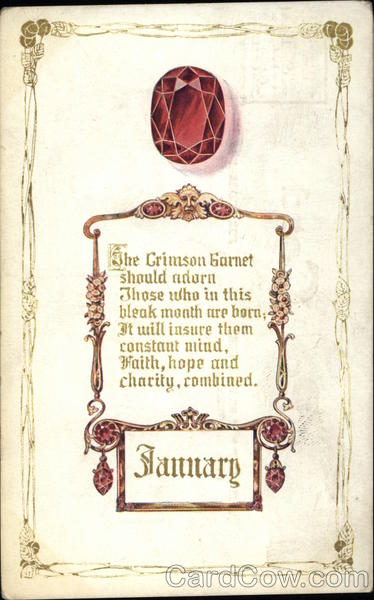 The Crimson Garnet
should adorn
Those who in this
bleak month are born;
It will insure them
constant mind,
Faith, hope and
charity, combined.
January
CardCow.com